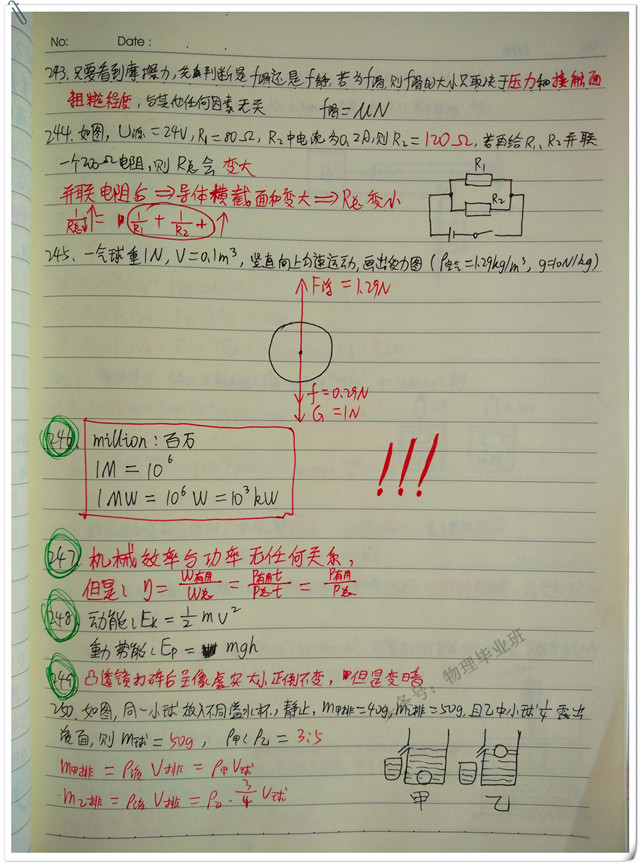 No: Date:
243. 只要看到摩擦力,先判断是f滑还是f静,若为f滑,则f滑的大小只取决于压力和接触面
粗糙程度,与其他任何因素无关 f滑=μN
244. 如图,U源=24V,R₁=80Ω,R₂中电流为0.2A,则R₂=120Ω,若再给R₁、R₂并联
一个200Ω电阻,则R总会 变大
并联电阻后⇒导体横截面和变大⇒R总变小
1/R总↑= 1/R₁ + 1/R₂ + ↑
R₁
R₂
245. 一气球重1N,V=0.1m³,竖直向上匀速运动,画出受力图(ρ空气=1.29kg/m³,g=10N/kg)
F浮=1.29N
f=0.29N
G=1N
246. million:百万
1M=10⁶
1MW=10⁶W=10³kW
!!!
247. 机械效率与功率无任何关系,
但是:η=W有用/W总=P有用t/P总t=P有用/P总
248. 动能:Eₖ=½mv²
重力势能:Eₚ= mgh
249. 凸透镜打碎后呈像虚实大小正倒不变,但是变暗
号:物理毕业班
250. 如图,同一小球放入不同溢水杯,静止,m甲排=40g,m乙排=50g,且乙中小球¼露出
液面,则m球=50g,ρ甲:ρ乙=3:5
m甲排=ρ液V排=ρ甲V球
m乙排=ρ液V排=ρ乙·¾V球
甲 乙